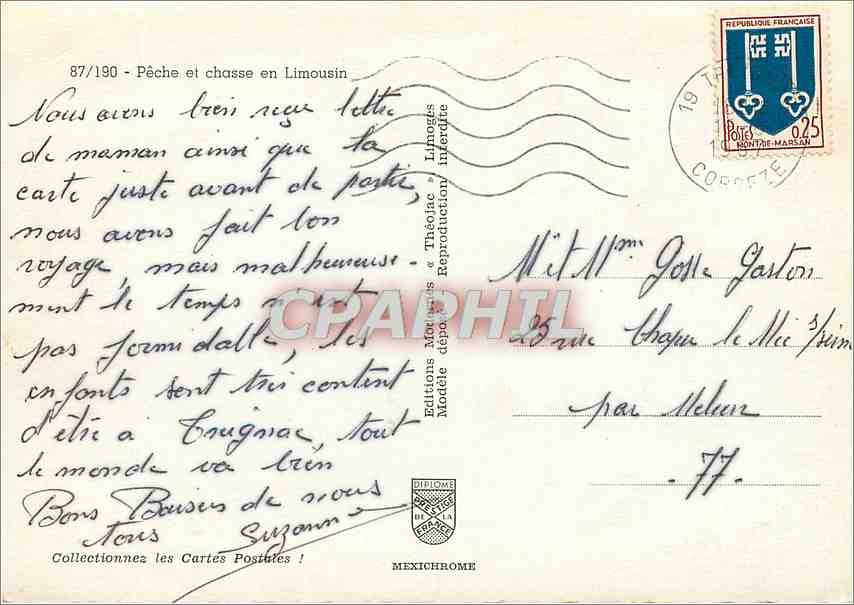 87/190 - Pêche et chasse en Limousin
Nous avons bien reçu lettre
de maman ainsi que la
carte juste avant de partir,
nous avons fait bon
voyage, mais malheureuse-
ment le temps n'est
pas formidable, les
enfants sont très content
d'être à Treignac, tout
le monde va bien
Bons Baisers de nous
tous Suzanne
Collectionnez les Cartes Postales !
Editions Modernes « Théojac » Limoges
Modèle déposé Reproduction Interdite
CPAPHIL
DIPLOME
PRESTIGE
DE LA
FRANCE
MEXICHROME
REPUBLIQUE FRANÇAISE
Postes 0,25
MONT-DE-MARSAN
19
CORREZE
Mr et Mme Gosse Gaston
25 rue Chapu le Mée s/seine
par Melun
-77-